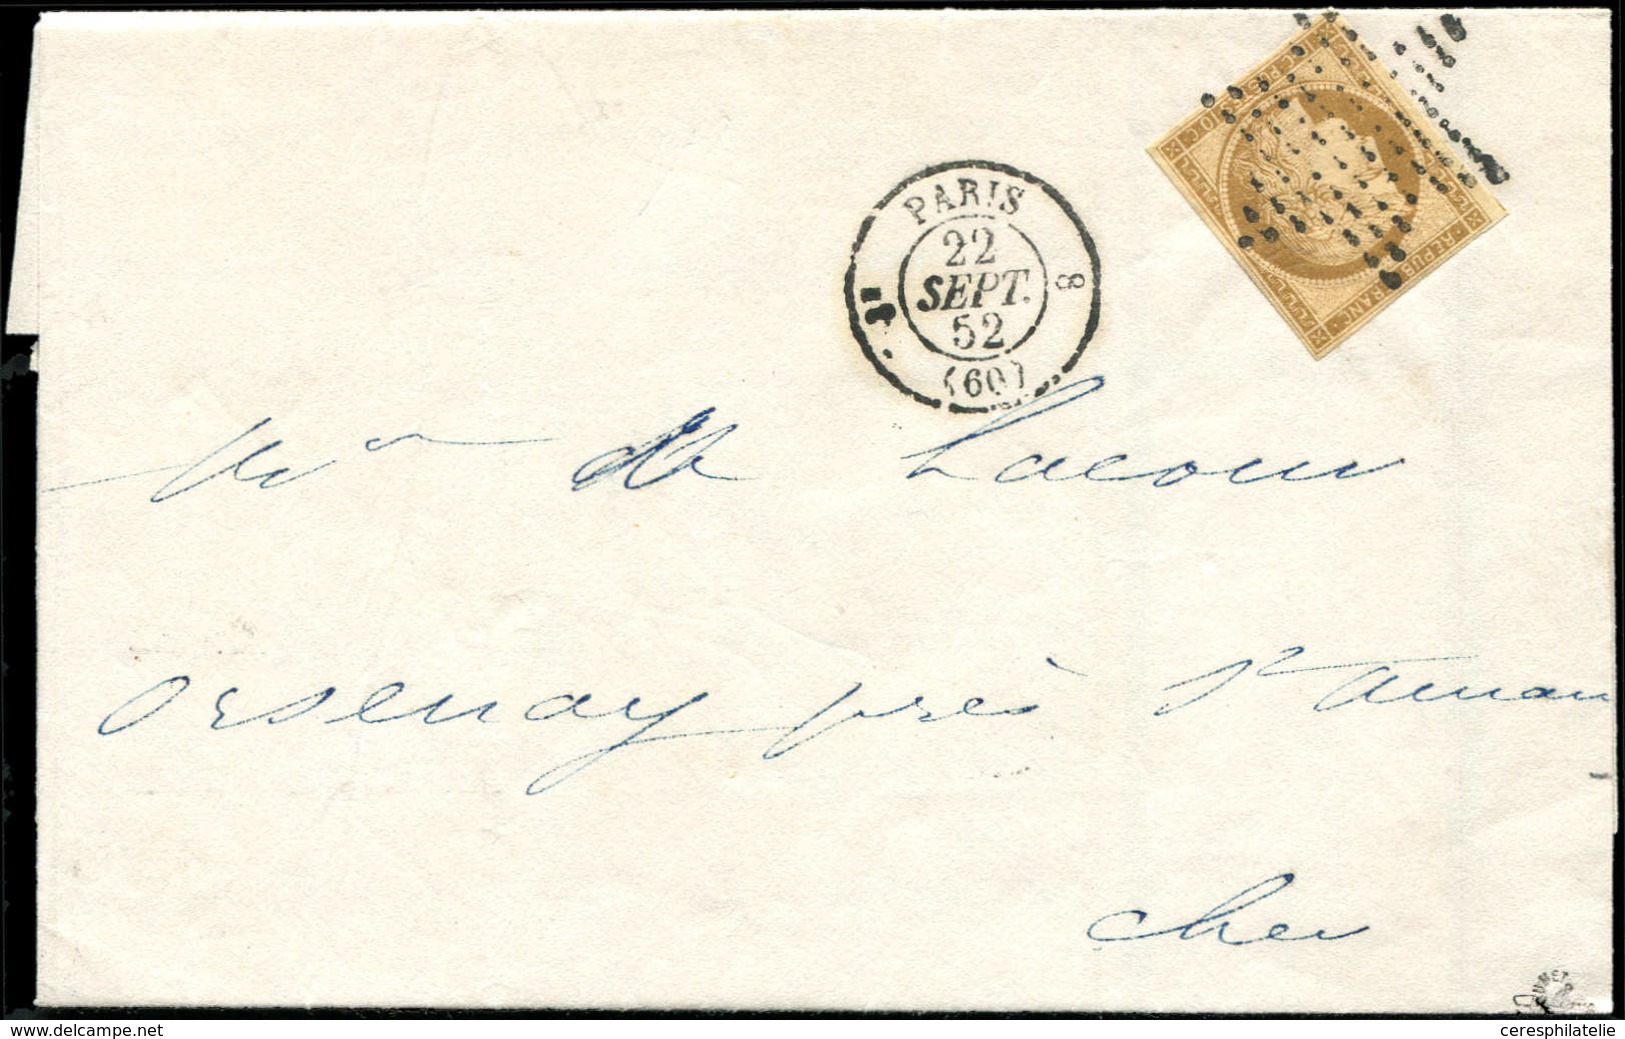 10 C. POSTES 10 C.
REPUB FRANC.
PARIS
8
22
SEPT.
52
(60)
Mr de Lacour
Orsenay près St Aman
Cher
delcampe.net
ceresphilatelie